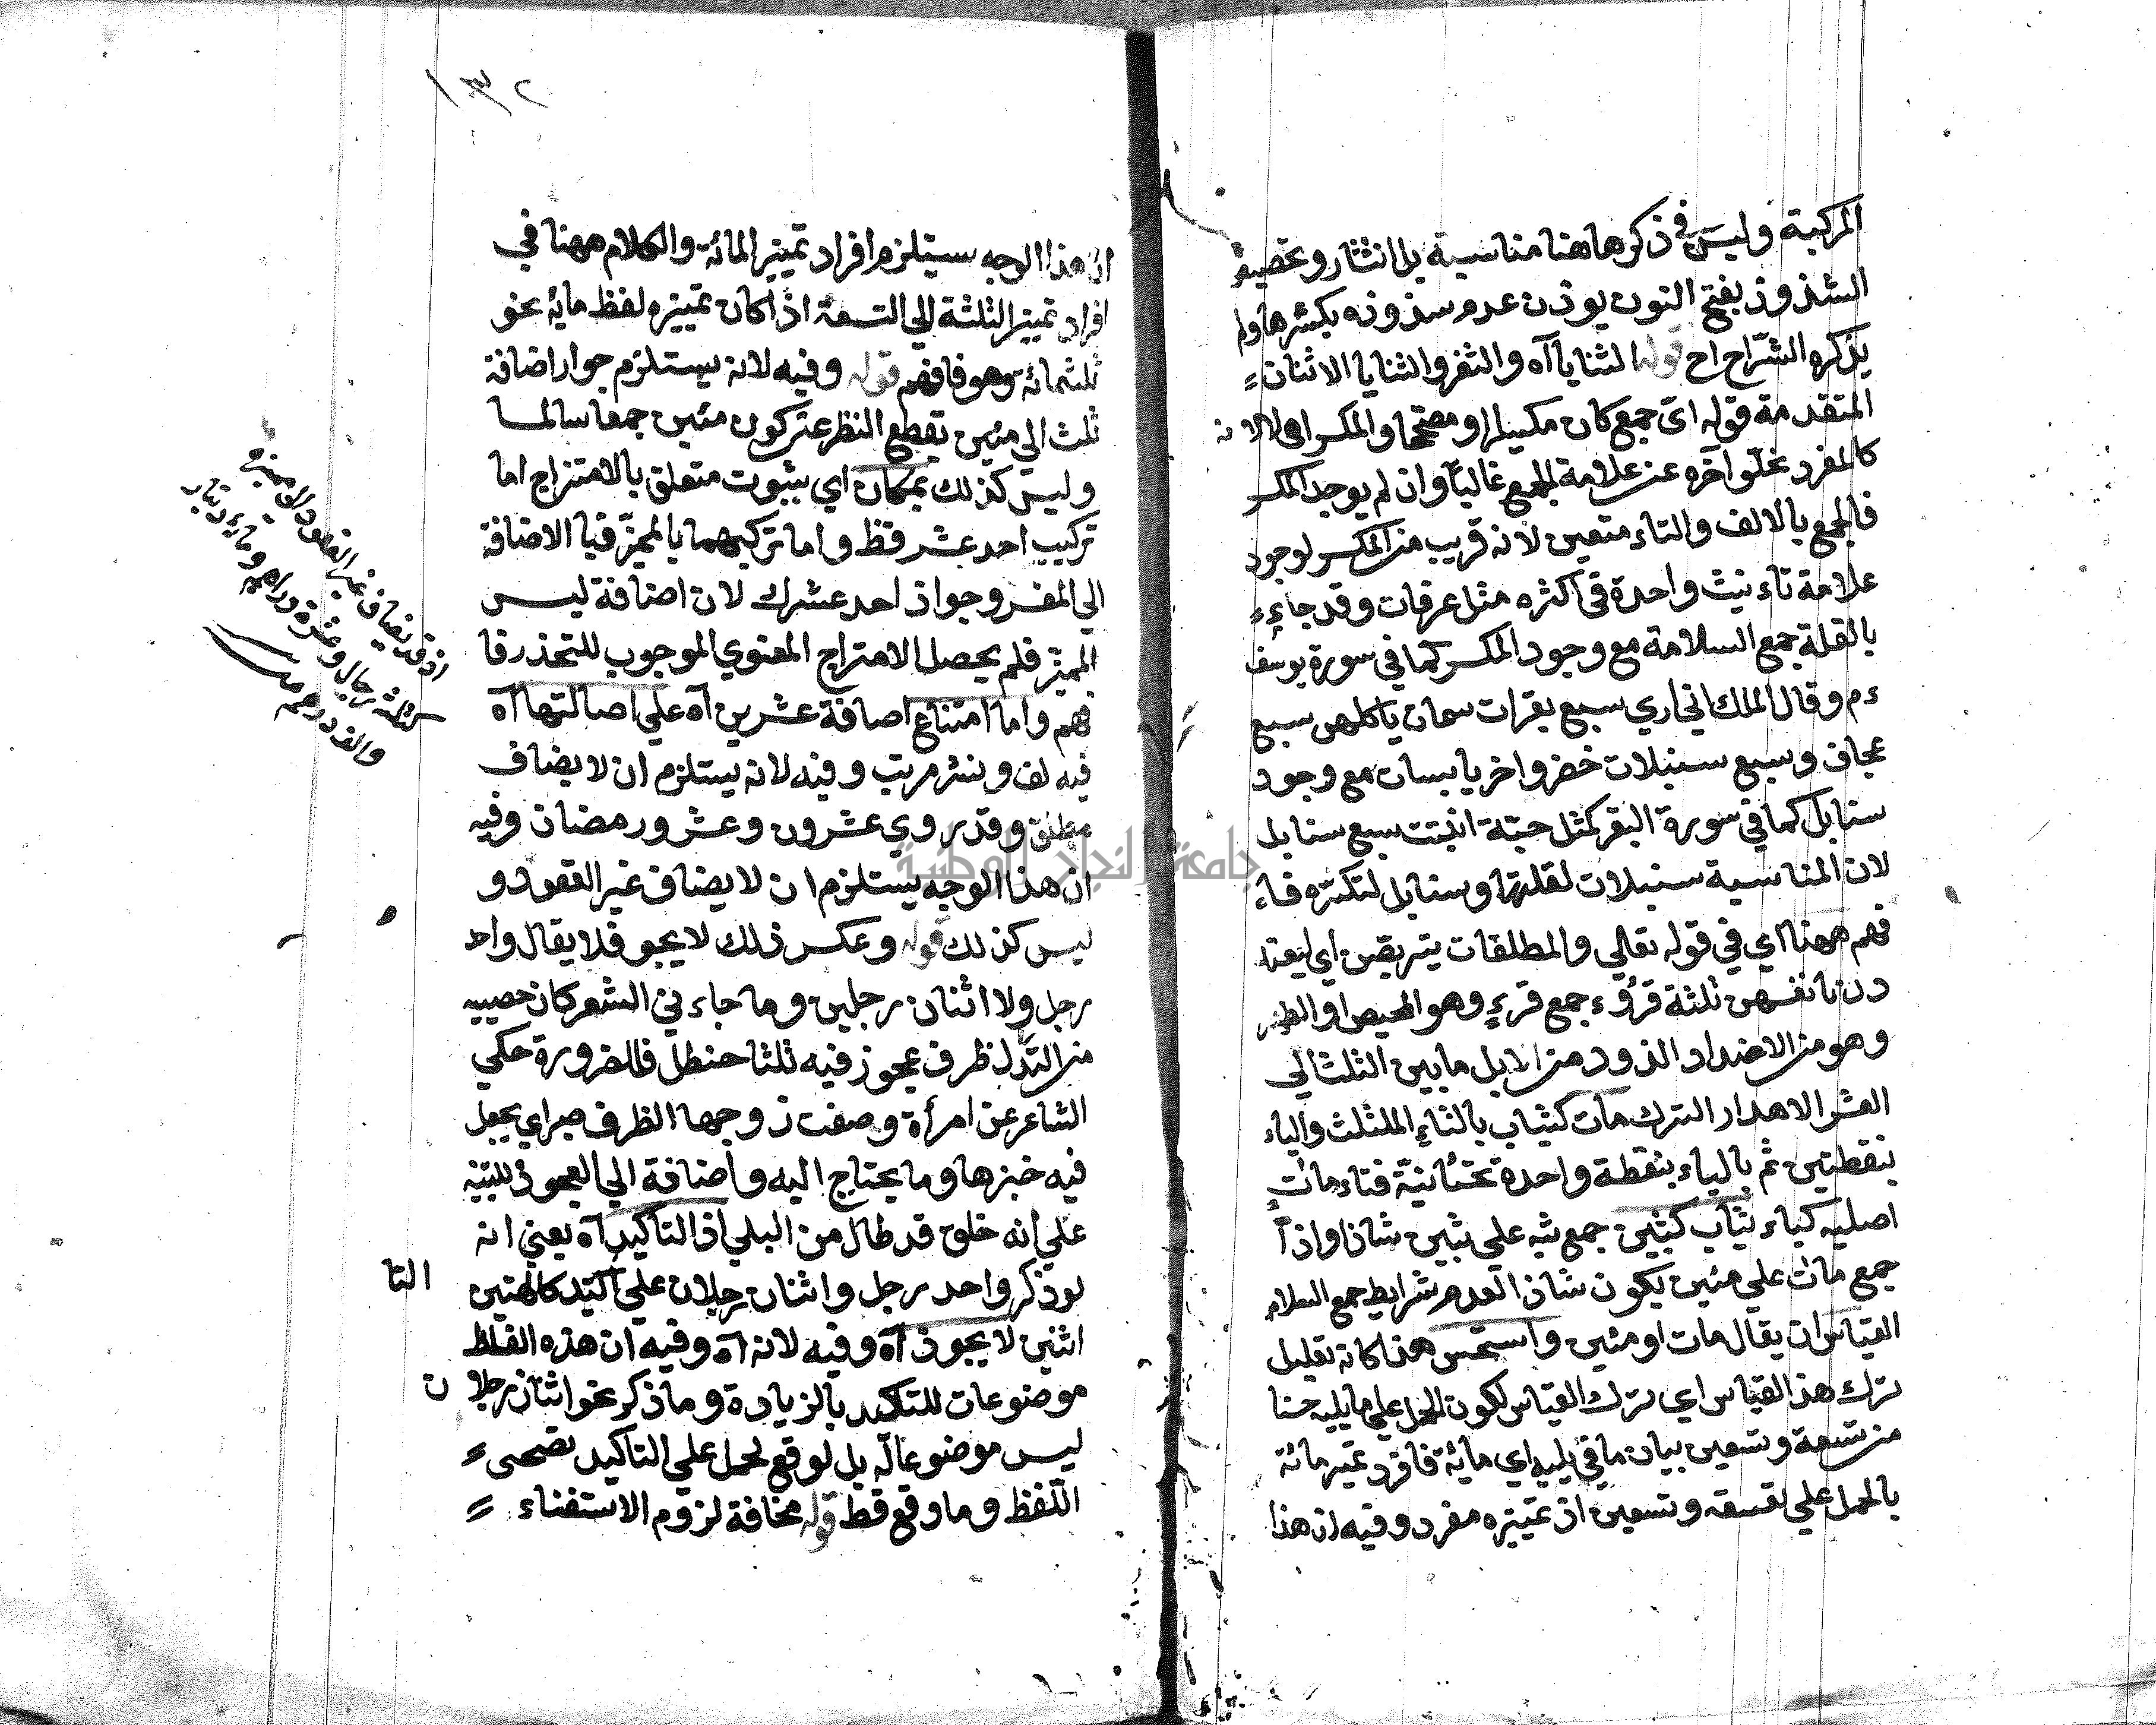 المركبة وليس في ذكرها هنا مناسبة بل انتثار وتخصيص
الشذوذ بفتح النون يوذن عدم شذوذه بكسرها ولم
يذكره الشراح اح قوله الثنايا آه والثغر والثنايا الاثنان
المتقدمة قوله اي جمع كان مكسرا او مصححا والمكسر اولي لانه
كالمفرد بخلو آخره عن علامة الجمع غالبا وان لم يوجد المكسر
فالجمع بالالف والتاء متعين لانه قريب من المكسر لوجود
علامة تاء نيث واحدة في اكثره مثل عرفات وقد جاء
بالقلة جمع السلامة مع وجود المكسر كما في سورة يوسف
ءم وقال الملك اني اري سبع بقرات سمان ياكلهن سبع
عجاف وسبع سنبلات خضر واخر يابسات مع وجود
سنابل كما في سورة البقر كمثل حبة انبتت سبع سنابل
لان المناسبة سنبلات لقلتها وسنابل لتكثره فاء
فهم ههنا اي في قوله تعالي والمطلقات يتربصن اي يعتد
دن بانفسهن ثلثة قروء جمع قرء وهو الحيض او الطهر
وهو من الاضداد الذود من الابل ما بين الثلث الي
العشر الاهدار الترك مات كثياب بالثاء المثلث والياء
بنقطتين ثم بالياء بنقطة واحدة تحتانية فتاء مات
اصليه كباء ثياب كثبين جمع ثبه علي ثبين شاذا واذا
جمع مات علي مئين يكون شاذا لعدم شرايط جمع السلام
القياس ان يقال مات او مئين واستحسن هذا كانه تعليل
ترك هذا القياس اي ترك القياس لكون الحمل علي ما يليه حسنا
من تسعة وتسعين بيان ما في يليه اي مائة فافرد تميز مائة
بالحمل علي تسعة وتسعين اذ تمييزه مفرد وفيه ان هذا
١٣٢
ان هذا الوجه سيتلزم افراد تمييز المائة والكلام ههنا في
افراد تمييز الثلثة الي التسعة اذا كان تمييزه لفظ مائة نحو
ثلثمائة وهو فافهم قوله وفيه لانه يستلزم جواز اضافة
ثلث الي مئين بقطع النظر عن كون مئين جمعا سالما
وليس كذلك بمكان اي بثبوت متعلق بالامتزاج اما
تركيب احد عشر فظ واما تركيبهما بالمميز فبالاضافة
الي المفرد وجواز احد عشرك لان اضافة ليس
المميز فلم يحصل الامتزاج المعنوي الموجوب للتحذر فا
فهم واما امتناع اضافة عشرين آه علي اصالتها آه
فيه لف ونشر مرتب وفيه لانه يستلزم ان لا يضاف
مطلق وقد روي عشرون وعشرو رمضان وفيه
ان هذا الوجه يستلزم ان لا يضاف غير العقود و
ليس كذلك قوله وعكس ذلك لا يجو فلا يقال واحد
رجل ولا اثنان رجلين وما جاء في الشعر كان خصييه
من التدلدل ظرف عجوز فيه ثلثا حنظل فالضرورة حكي
الشاعر عن امرأة وصفت زوجها الظرف جراي يجعل
فيه خبزها وما يحتاج اليه واضافة الي العجوز للتبنيه
علي انه خلق قد طال من البلي اذ التاكيد آه يعني انه
لو ذكر واحد رجل واثنان رجلان علي اكتيد كالهتين
التا
اثنين لا يجوز آه وفيه لانه آه وفيه ان هذه الفلظ
موضوعات للتاكيد بالزيادة وما ذكر نحو اثنان رجلا
ن
ليس موضوعا له بل لو قع لحمل علي التاكيد تصحى
اللفظ وما وقع قط قوله مخافة لزوم الاستغناء
اذ قد يضاف غير العقود الي مميزه
كثلثة رجال وعشرة دراهم ومائة دينار
والف درهم منه
جامعة النجاح الوطنية